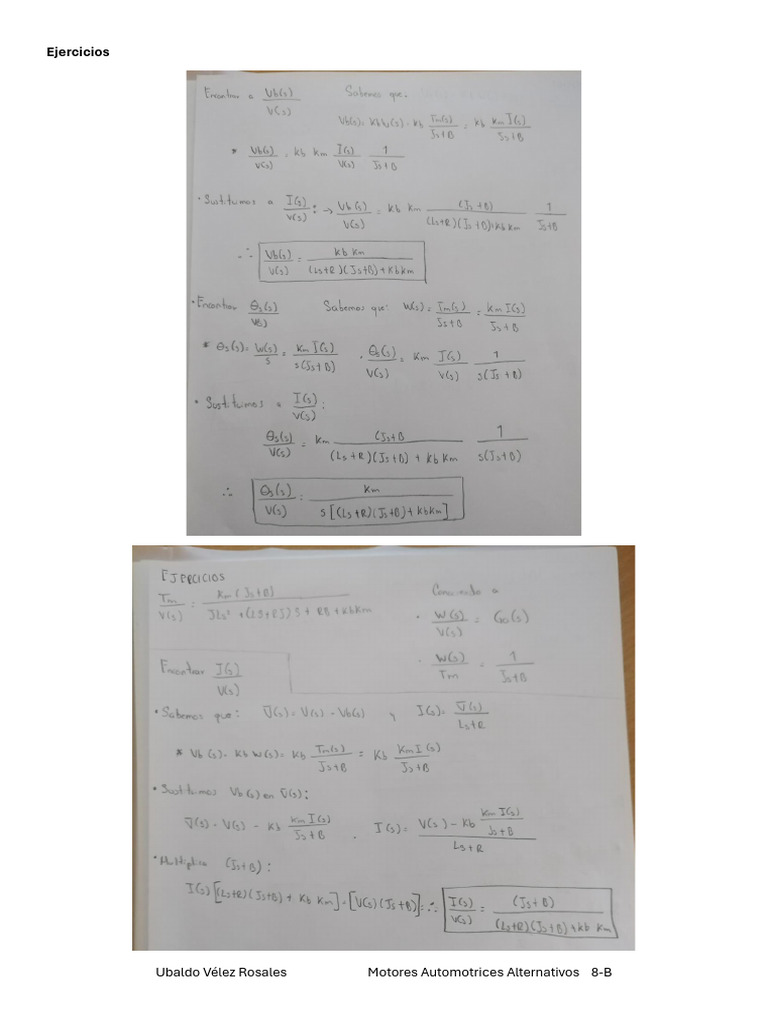 Ejercicios
Encontrar a Vb(s)/V(s) Sabemos que:
Vb(s) = Kb W(s) = Kb Tm(s)/(Js+B) = Kb Km I(s)/(Js+B)
* Vb(s)/V(s) = Kb Km I(s)/V(s) 1/(Js+B)
• Sustituimos a I(s)/V(s): → Vb(s)/V(s) = Kb Km (Js+B)/((Ls+R)(Js+B)+Kb Km) 1/(Js+B)
∴ Vb(s)/V(s) = Kb Km/((Ls+R)(Js+B)+KbKm)
• Encontrar θs(s)/V(s) Sabemos que: W(s) = Tm(s)/(Js+B) = Km I(s)/(Js+B)
* θs(s) = W(s)/s = Km I(s)/(s(Js+B)) , θs(s)/V(s) = Km I(s)/V(s) 1/(s(Js+B))
• Sustituimos a I(s)/V(s):
θs(s)/V(s) = Km (Js+B/((Ls+R)(Js+B) + Kb Km) 1/(s(Js+B))
∴ θs(s)/V(s) = Km/(s[(Ls+R)(Js+B)+KbKm])
EJERCICIOS
Tm/V(s) = Km(Js+B)/(JLs² +(LB+RJ)s + RB + KbKm) Conociendo a
• W(s)/V(s) = Go(s)
• W(s)/Tm = 1/(Js+B)
Encontrar I(s)/V(s)
• Sabemos que: V̄(s) = V(s) - Vb(s) y I(s) = V̄(s)/(Ls+R)
* Vb(s) = Kb W(s) = Kb Tm(s)/(Js+B) = Kb Km I(s)/(Js+B)
• Sustituimos Vb(s) en V̄(s):
V̄(s) = V(s) - Kb Km I(s)/(Js+B) , I(s) = (V(s) - Kb Km I(s)/(Js+B))/(Ls+R)
• Multiplico (Js+B):
I(s)[(Ls+R)(Js+B) + Kb Km] = [V(s)(Js+B)] = ∴ I(s)/V(s) = (Js+B)/((Ls+R)(Js+B)+Kb Km)
Ubaldo Vélez Rosales Motores Automotrices Alternativos 8-B